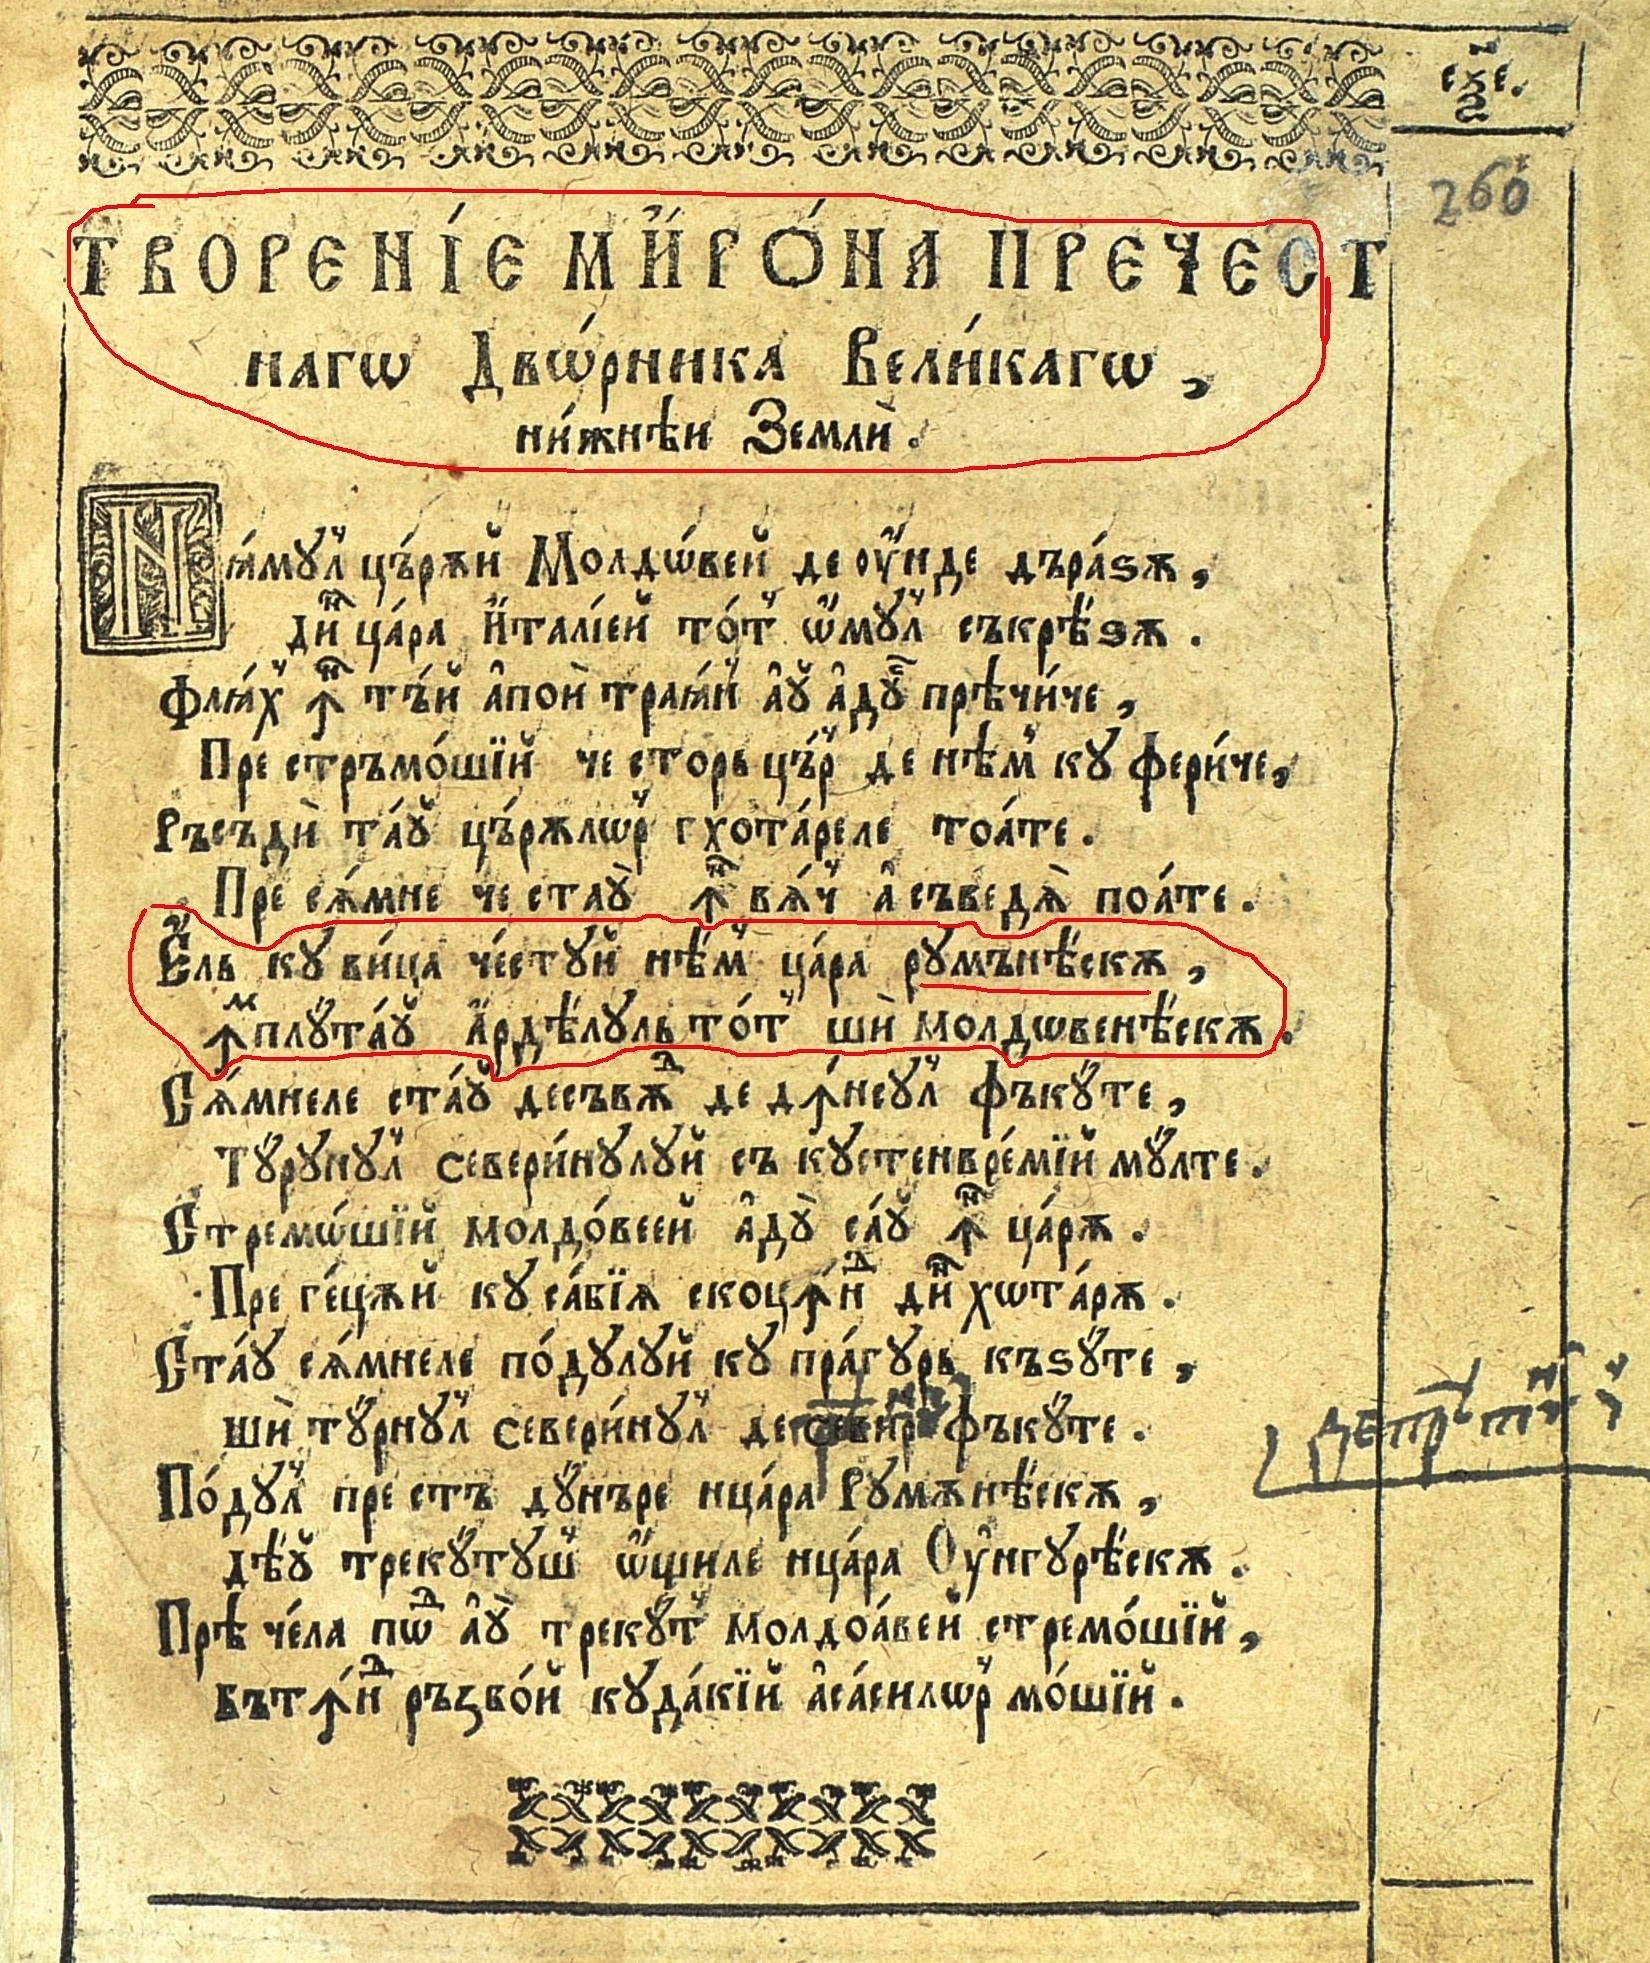 еѯе.
260
ТВОРЕНІЕ МИРОНА ПРЕЧЕСТ
нагѡ Двѡрника Великагѡ,
нижнѣи Земли.
Нꙗмꙋл цъ́рѫй Молдѡ́вей де ѹ́нде дъра́ѕѫ,
дин ца́ра Италі́ей то́т ѡ́мꙋл съкрѣ́ѕѫ.
Флꙗ́х ꙟн тъ́й апой траꙗ́н аꙋ адꙋс прѣчи́че,
Пре стръмо́шїй че сторь цъ́р де нѣ́м кꙋ фери́че,
Ръсъди та́ꙋ цъ́рѫлѡр гхота́реле тоа́те.
Пре сѧ́мне че стаꙋ ꙟн вѧ́ч а съведѧ поа́те.
Ель кꙋ ви́ца че́стꙋй нѣ́м ца́ра рꙋмънѣ́скѫ,
ꙟмплꙋта́ꙋ Ардѣ́лꙋль то́т ши молдѡвенѣ́скѫ.
Сѧ́мнеле ста́ꙋ десъвѫд де дꙟ́неꙋл фъкꙋ́те,
Тꙋ́рꙋнꙋл севери́нꙋлꙋй съ кꙋстенвре́мїй мꙋ́лте.
Стремѡ́шїй молдо́веей адꙋ са́ꙋ ꙟн ца́рѫ.
Пре ге́цѫй кꙋ са́бїѧ скоцꙟ́нд дин хѡта́рѫ.
Ста́ꙋ сѧ́мнеле по́дꙋлꙋй кꙋ пра́гꙋрь къѕꙋ́те,
ши тꙋ́рнꙋл севери́нꙋл де севир фъкꙋ́те.
По́дꙋл пре стъ дꙋ́нъре нца́ра Рꙋмѫнѣ́скѫ,
дѣꙋ трекꙋ́тꙋш ѡ́щиле нца́ра Оу҆нгꙋрѣ́скѫ.
Прѣ че́ла пѡд аꙋ трекꙋ́т молдоа́вей стремо́шїй,
бътꙟ́нд ръзбо́й кꙋда́кїй аса́силѡр мо́шїй.